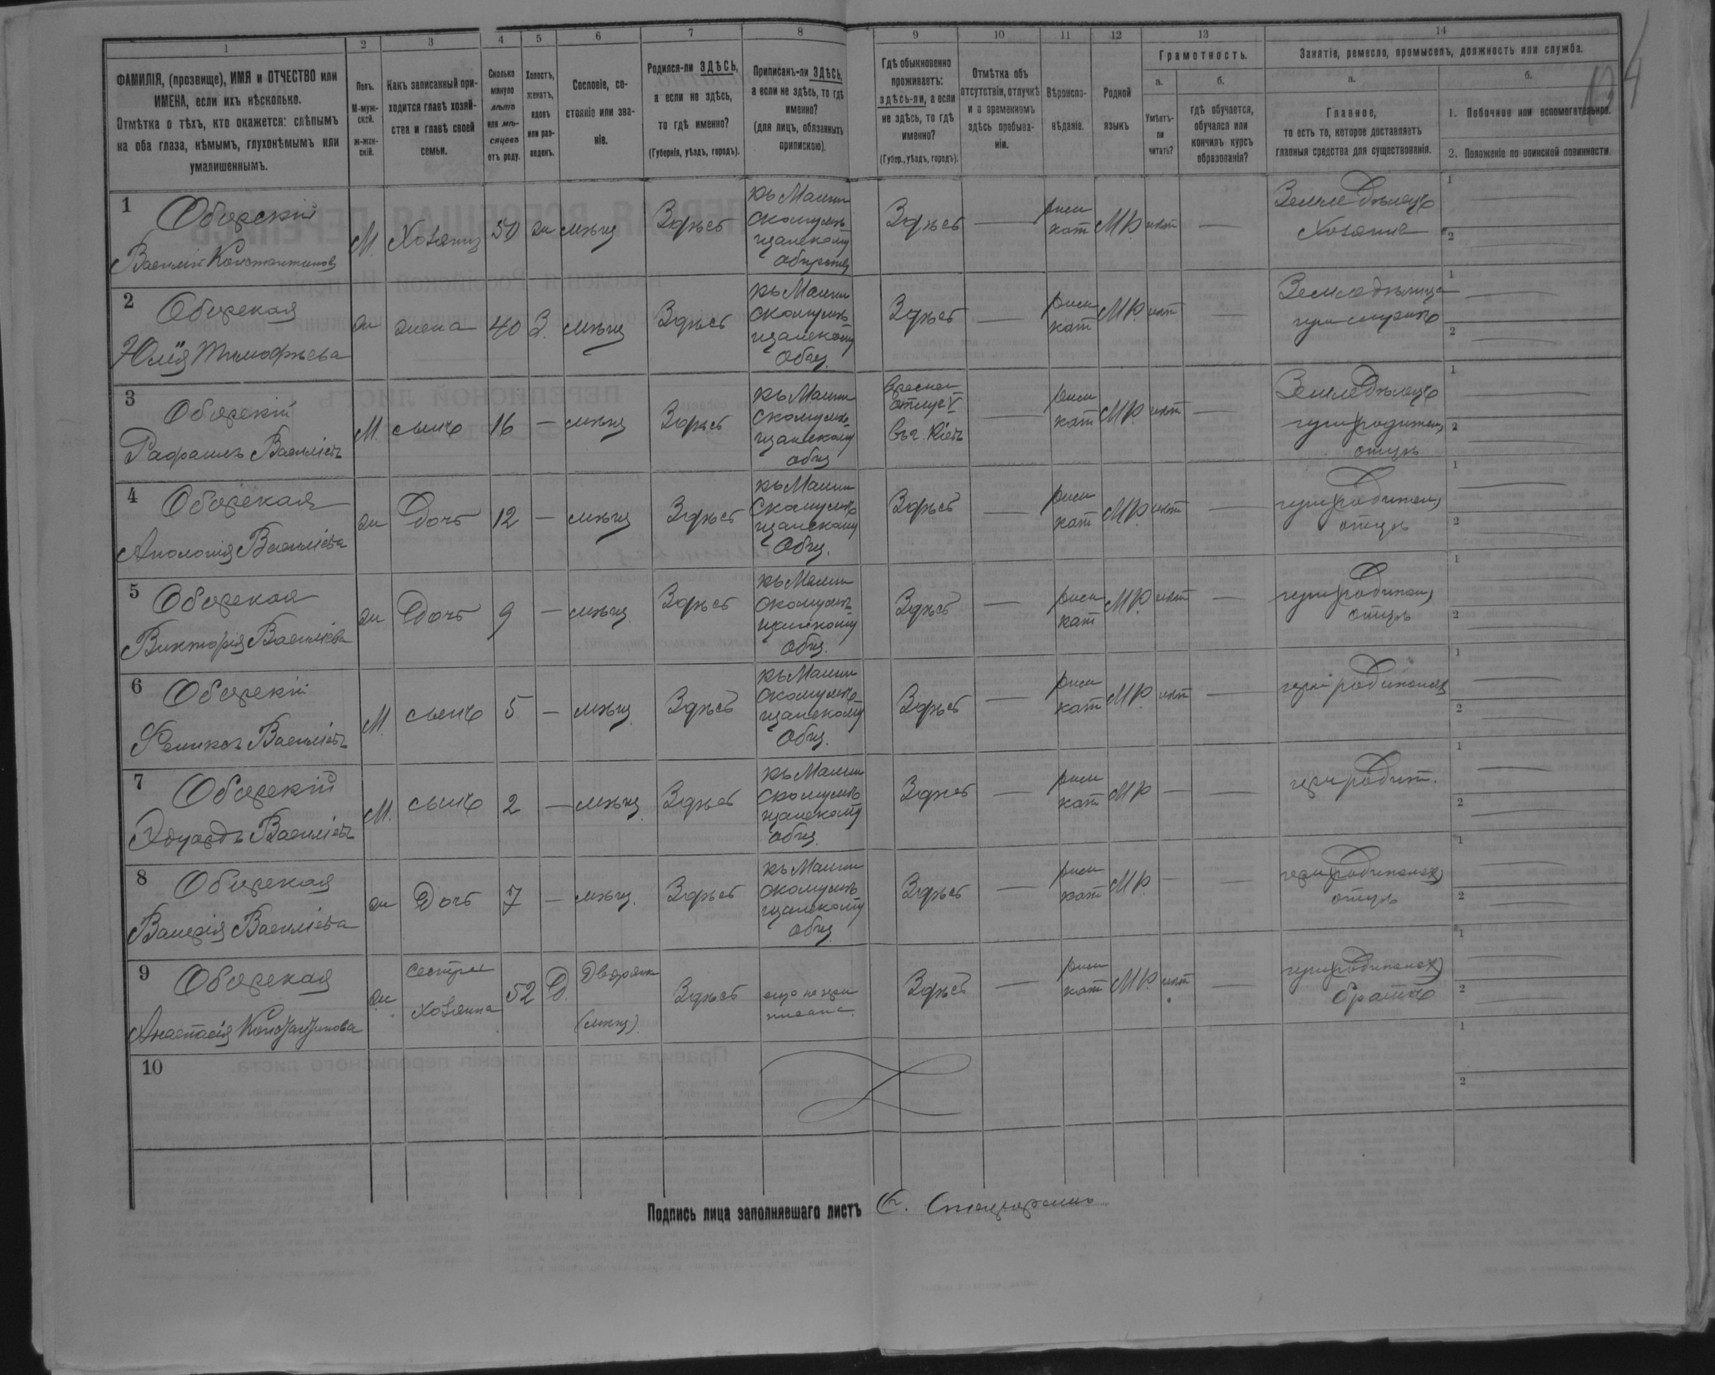 1 2 3 4 5 6 7 8 9 10 11 12 13 14
ФАМИЛІЯ, (прозвище), ИМЯ и ОТЧЕСТВО или
ИМЕНА, если ихъ нѣсколько.
Отмѣтка о тѣхъ, кто окажется: слѣпымъ
на оба глаза, нѣмымъ, глухонѣмымъ или
умалишеннымъ.
Полъ.
М-муж-
ской.
Ж-жен-
скій.
Какъ записанный при-
ходится главѣ хозяй-
ства и главѣ своей
семьи.
Сколько
минуло
лѣтъ
или мѣ-
сяцевъ
отъ роду.
Холостъ,
женатъ,
вдовъ
или раз-
веденъ.
Сословіе, со-
стояніе или зва-
ніе.
Родился-ли ЗДѢСЬ,
а если не здѣсь,
то гдѣ именно?
(Губернія, уѣздъ, городъ).
Приписанъ-ли ЗДѢСЬ,
а если не здѣсь, то гдѣ
именно?
(для лицъ, обязанныхъ
припискою).
Гдѣ обыкновенно
проживаетъ:
здѣсь-ли, а если
не здѣсь, то гдѣ
именно?
(Губер., уѣздъ, городъ).
Отмѣтка объ
отсутствіи, отлучкѣ
и о временномъ
здѣсь пребыва-
ніи.
Вѣроиспо-
вѣданіе.
Родной
языкъ
Грамотность.
а.
Умѣетъ-
ли
читать?
б.
гдѣ обучается,
обучался или
кончилъ курсъ
образованія?
Занятіе, ремесло, промыселъ, должность или служба.
а.
Главное,
то есть то, которое доставляетъ
главныя средства для существованія.
б.
1. Побочное или вспомогательное.
2. Положеніе по воинской повинности.
1 Оборскій
Василій Константиновъ
М. Хозяинъ 50 ж мѣщ Здѣсь
къ Малин
скому мѣ
щанскому
обществу
Здѣсь — рим
кат МР. нѣт —
Земледѣлецъ
Хозяинъ
1
2
2 Оборская
Юлія Тимофѣева
ж жена 40 З. мѣщ Здѣсь
къ Малин
скому мѣ
щанскому
Общ.
Здѣсь — рим
кат МР. нѣт —
при мужѣ
1
2
3 Оборскій
Рафаилъ Василіевъ
М. сынъ 16 — мѣщ Здѣсь
къ Малин
скому мѣ
щанскому
общ
въ г. Кіевъ
— рим
кат МР. нѣт —
Земледѣлецъ
1
2
4 Оборская
Аполонія Василіева
ж Дочь 12 — мѣщ Здѣсь
къ Малин
скому мѣ
щанскому
Общ.
Здѣсь — рим
кат МР. нѣт —
1
2
5 Оборская
Викторія Василіева
ж Дочь 9 — мѣщ. Здѣсь
къ Малин
скому мѣ
щанскому
Общ.
Здѣсь — рим
кат МР. нѣт —
1
2
6 Оборскій
Феликсъ Василіевъ
М. сынъ 5 — мѣщ. Здѣсь
къ Малин
скому мѣ
щанскому
Общ.
Здѣсь — рим
кат МР. нѣт —
при родителяхъ
1
2
7 Оборскій
Эдуардъ Василіевъ
М. сынъ 2 — мѣщ. Здѣсь
къ Малин
скому мѣ
щанскому
Общ.
Здѣсь — рим
кат МР — —
при родит.
1
2
8 Оборская
Валерія Василіева
ж Дочь 7 — мѣщ. Здѣсь
къ Малин
скому мѣ
щанскому
общ
Здѣсь — рим
кат МР — —
1
2
9 Оборская
Анастасія Константинова
ж. сестра
хозяина
52 Д. Дворян
(мѣщ).
Здѣсь
Здѣсь — рим
кат МР нѣт —
братѣ
1
2
10
1
2
Подпись лица заполнявшаго листъ